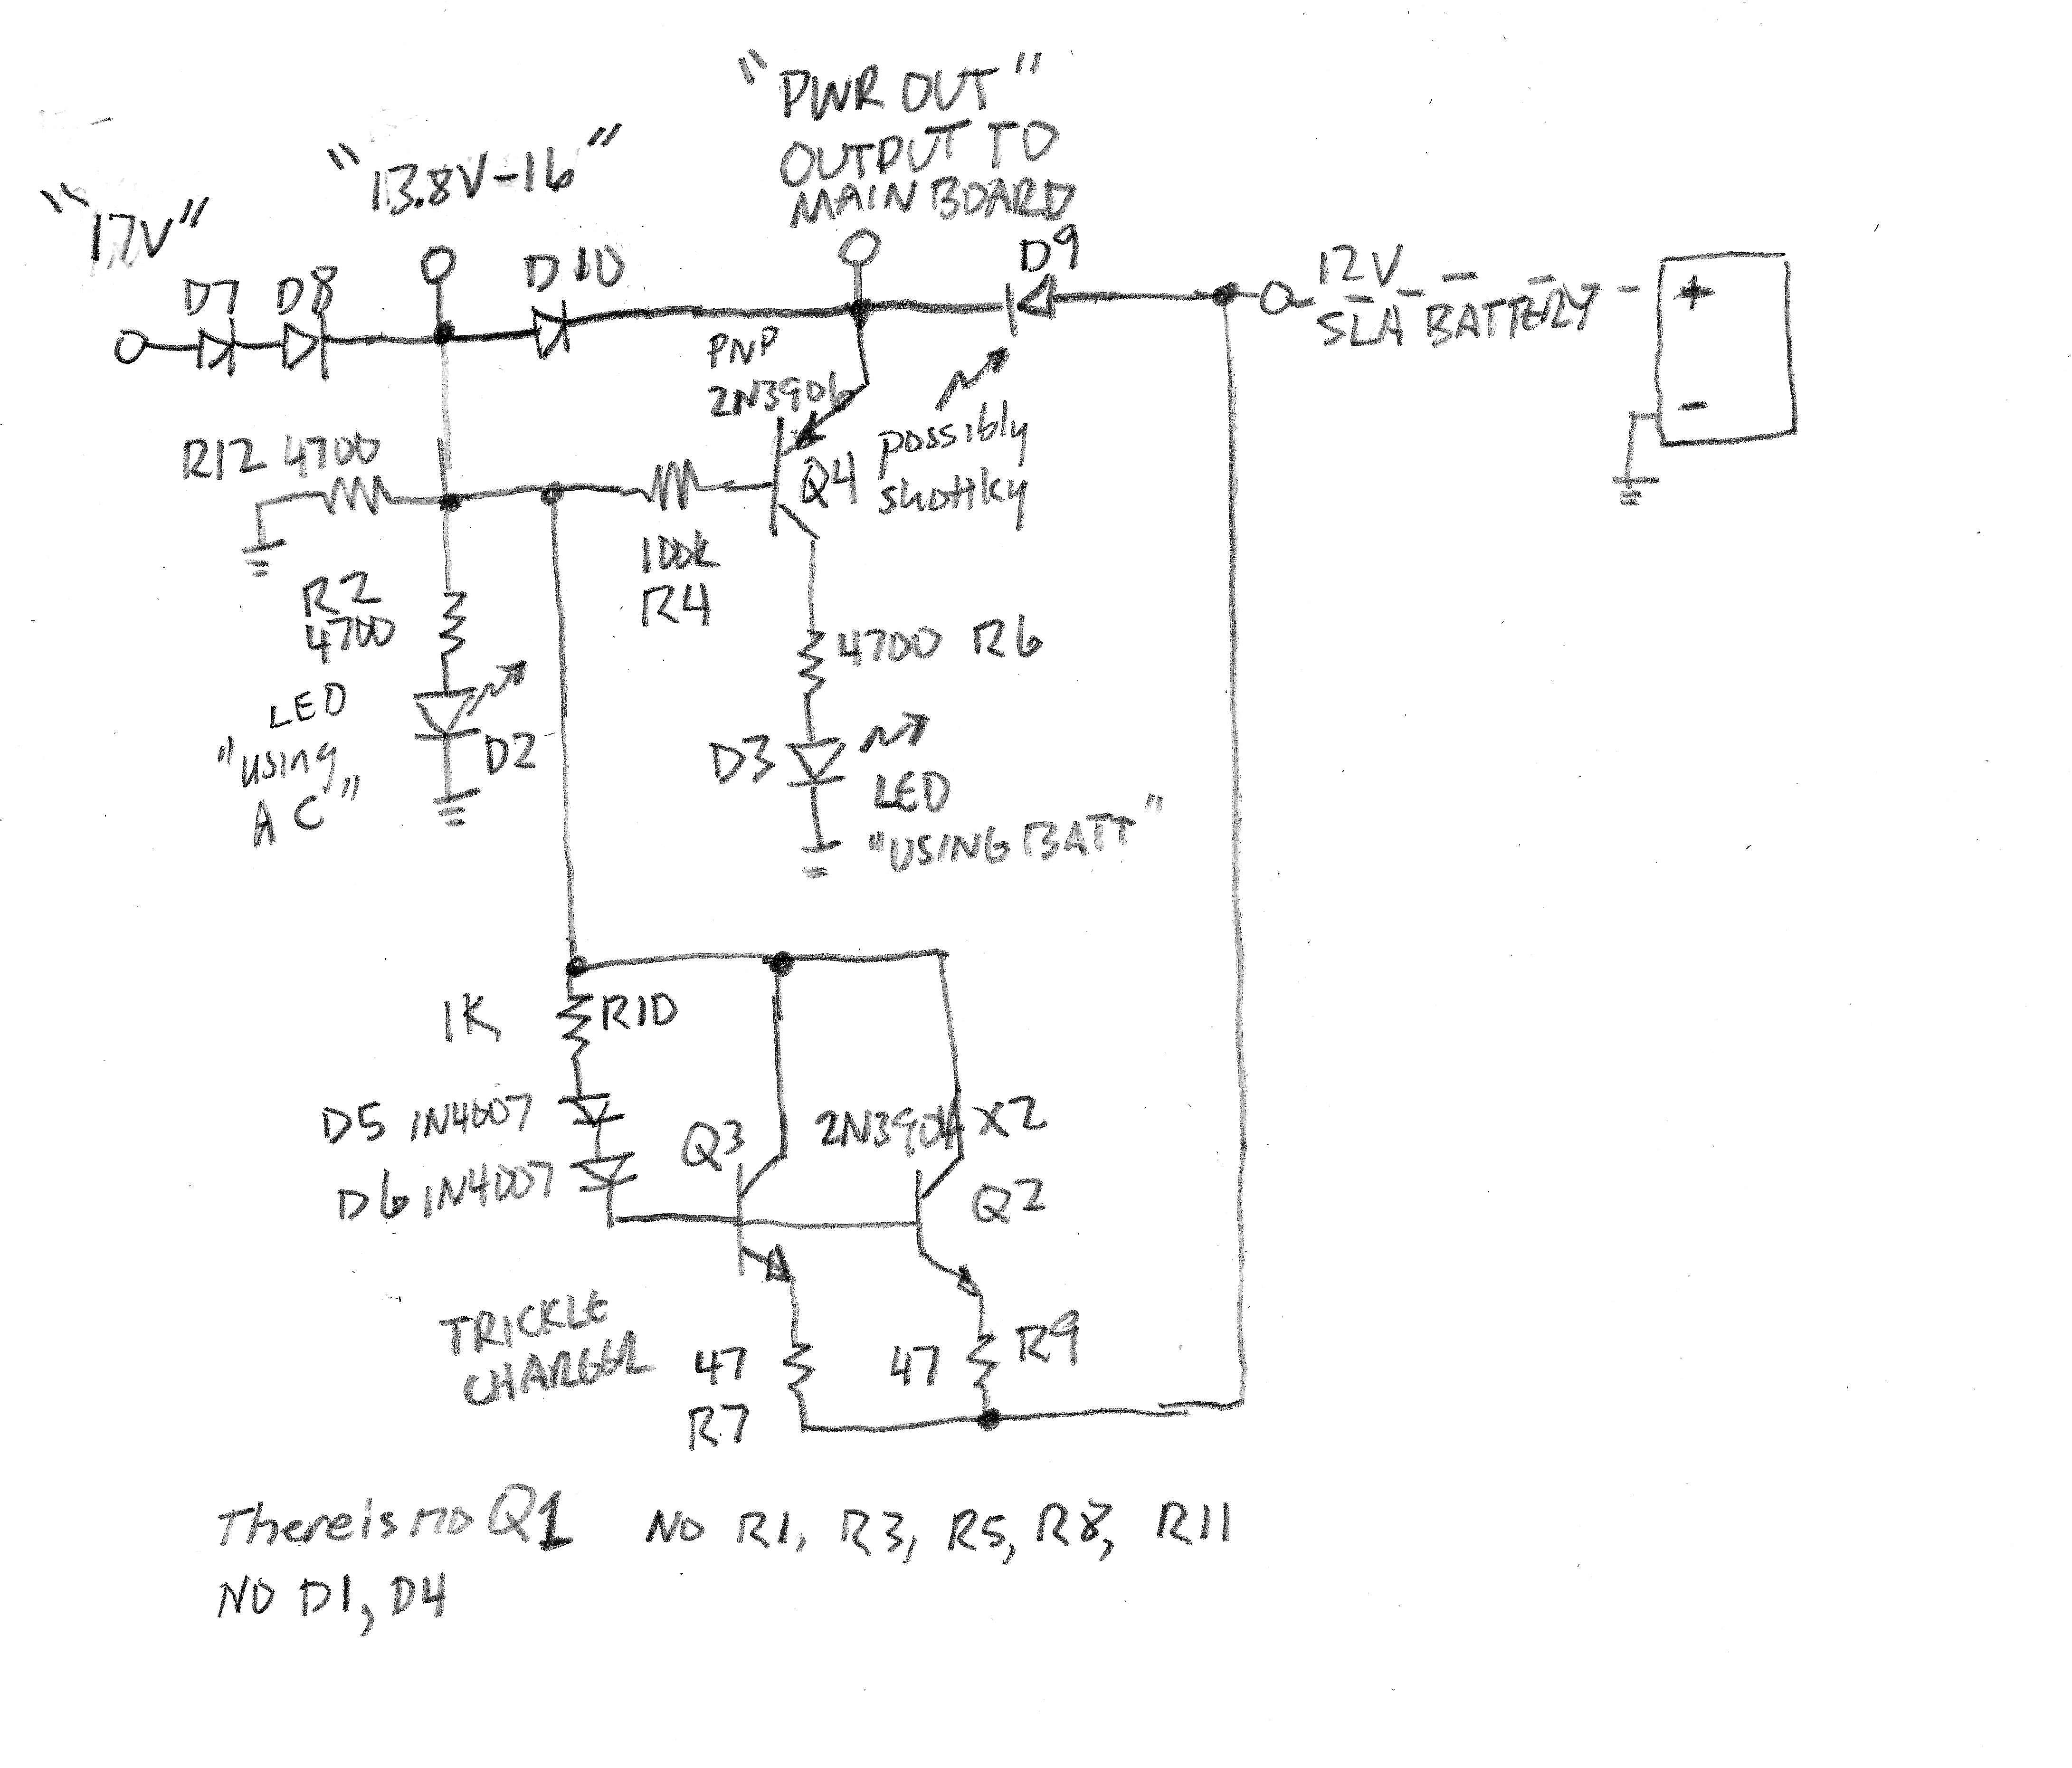 "PWR OUT"
OUTPUT TO
MAIN BOARD
"13.8V-16"
"17V"
D7
D8
D10
D9
12V
SLA BATTERY
+
-
PNP
2N3906
Q4
possibly
shottky
R12 4700
100K
R4
R2
4700
4700 R6
LED
"using
AC"
D2
D3
LED
"USING BATT"
1K
R10
D5 1N4007
D6 1N4007
Q3
2N3904 X2
Q2
TRICKLE
CHARGER
47
R7
47
R9
There is no Q1 NO R1, R3, R5, R8, R11
NO D1, D4